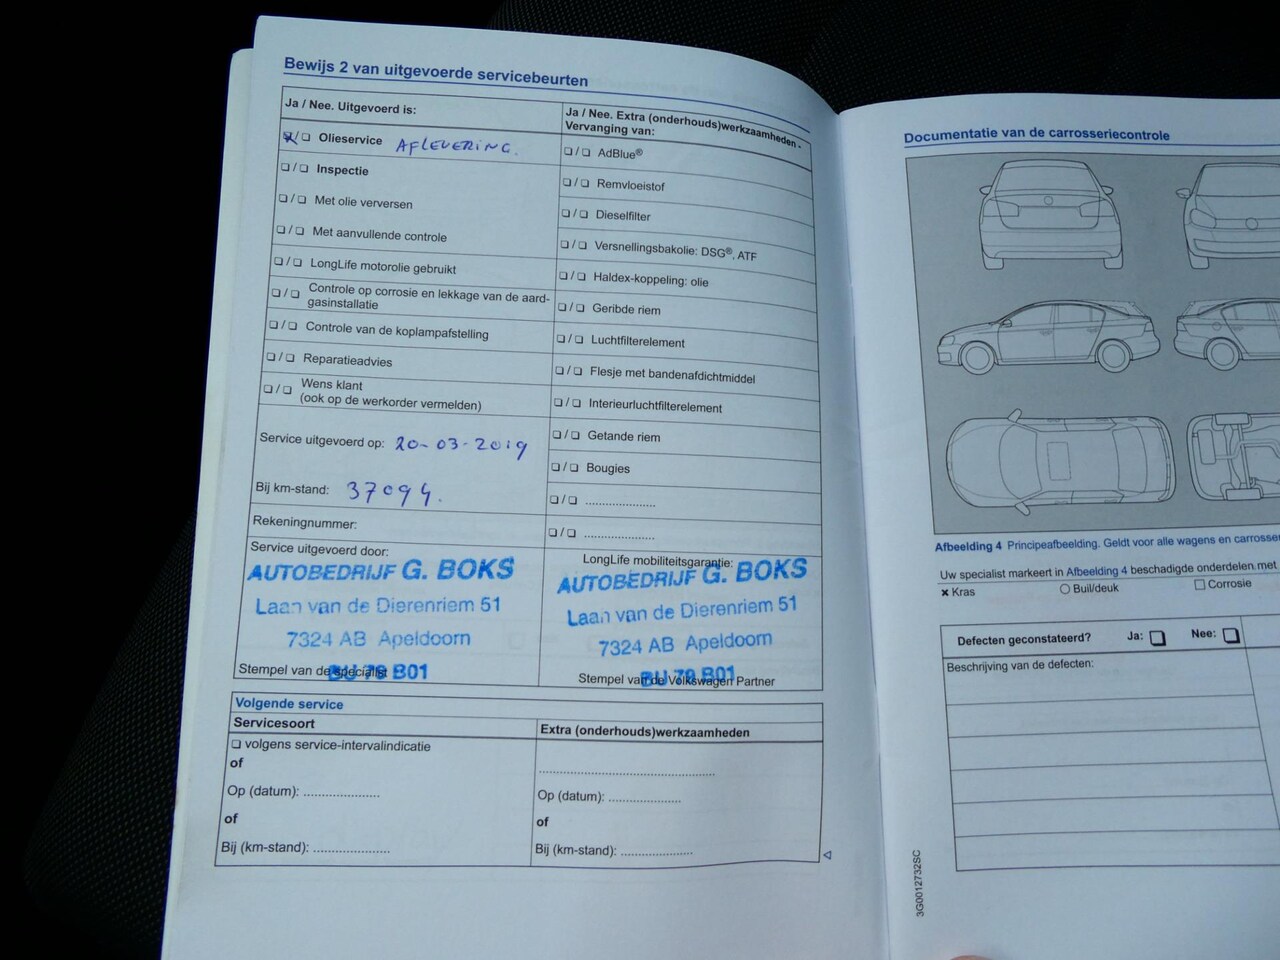 Bewijs 2 van uitgevoerde servicebeurten
Ja / Nee. Uitgevoerd is:
❏/❏ Olieservice AFLEVERING.
❏/❏ Inspectie
❏/❏ Met olie verversen
❏/❏ Met aanvullende controle
❏/❏ LongLife motorolie gebruikt
❏/❏ Controle op corrosie en lekkage van de aard-
gasinstallatie
❏/❏ Controle van de koplampafstelling
❏/❏ Reparatieadvies
❏/❏ Wens klant
(ook op de werkorder vermelden)
Service uitgevoerd op: 20-03-2019
Bij km-stand: 37094.
Rekeningnummer:
Service uitgevoerd door:
AUTOBEDRIJF G. BOKS
Laan van de Dierenriem 51
7324 AB Apeldoorn
BU 79 B01
Stempel van de specialist
Ja / Nee. Extra (onderhouds)werkzaamheden -
Vervanging van:
❏/❏ AdBlue®
❏/❏ Remvloeistof
❏/❏ Dieselfilter
❏/❏ Versnellingsbakolie: DSG®, ATF
❏/❏ Haldex-koppeling: olie
❏/❏ Geribde riem
❏/❏ Luchtfilterelement
❏/❏ Flesje met bandenafdichtmiddel
❏/❏ Interieurluchtfilterelement
❏/❏ Getande riem
❏/❏ Bougies
❏/❏ ......................
❏/❏ ......................
LongLife mobiliteitsgarantie:
AUTOBEDRIJF G. BOKS
Laan van de Dierenriem 51
7324 AB Apeldoorn
BU 79 B01
Stempel van de Volkswagen Partner
Volgende service
Servicesoort
❏ volgens service-intervalindicatie
of
Op (datum): ......................
of
Bij (km-stand): ......................
Extra (onderhouds)werkzaamheden
..................................................
Op (datum): .....................
of
Bij (km-stand): .....................
Documentatie van de carrosseriecontrole
Afbeelding 4 Principeafbeelding. Geldt voor alle wagens en
Uw specialist markeert in Afbeelding 4 beschadigde onderdelen met
× Kras
○ Buil/deuk
□ Corrosie
Defecten geconstateerd? Ja: ❏ Nee: ❏
Beschrijving van de defecten:
3G0012732SC